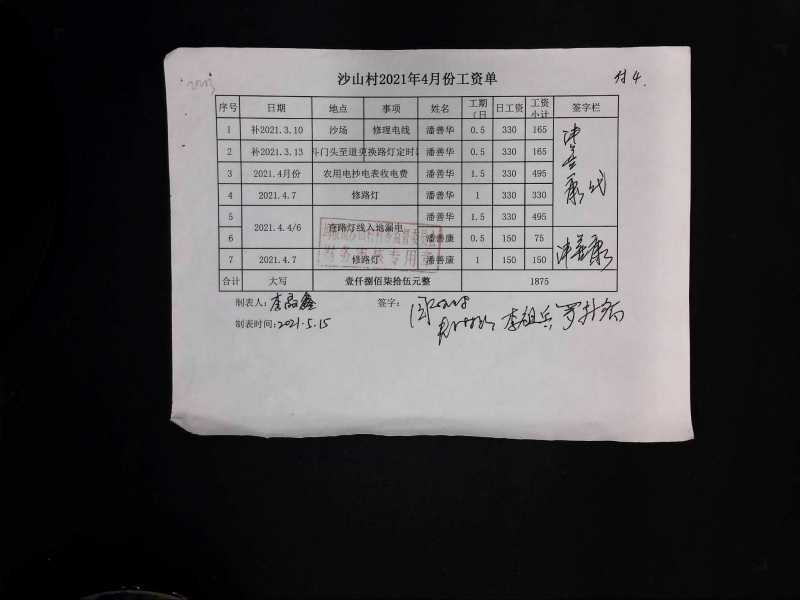 沙山村2021年4月份工资单
付4.
序号 日期 地点 事项 姓名 工期(日 日工资 工资小计 签字栏
1 补2021.3.10 沙场 修理电线 潘善华 0.5 330 165
2 补2021.3.13 斗门头至道 更换路灯定时 潘善华 0.5 330 165
3 2021.4月份 农用电抄电表收电费 潘善华 1.5 330 495
4 2021.4.7 修路灯 潘善华 1 330 330
5 2021.4.4/6 查路灯线入地漏电 潘善华 1.5 330 495
6 潘善康 0.5 150 75
7 2021.4.7 修路灯 潘善康 1 150 150
潘善康代
潘善康
财务审核专用章
合计 大写 壹仟捌佰柒拾伍元整 1875
制表人: 签字:
李祖兵
制表时间:2021.5.15